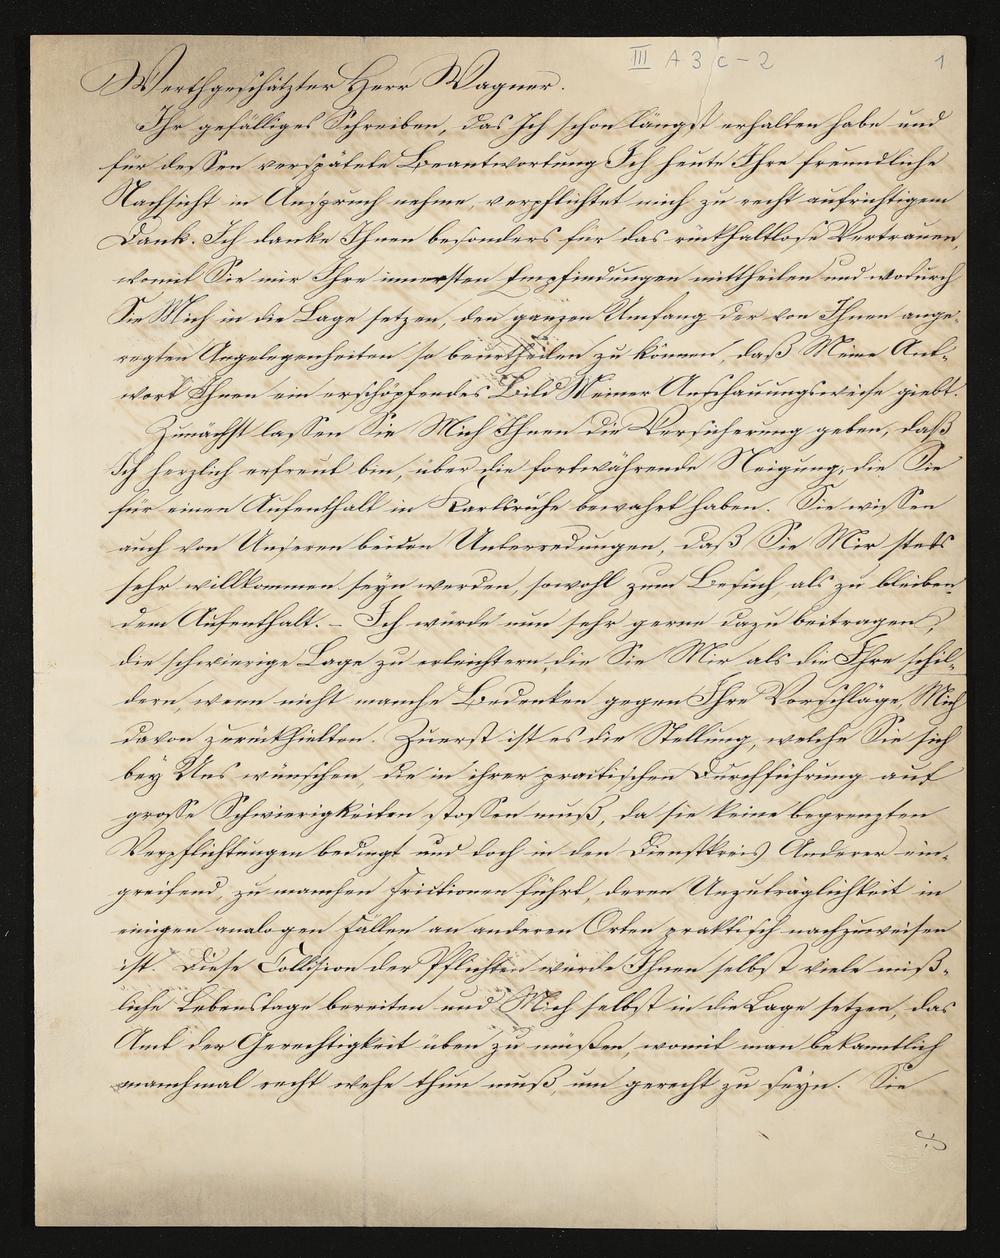 III A 3 c - 2
1
Werthgeschätzter Herr Wagner.
Ihr gefälliges Schreiben, das Ich schon längst erhalten habe und
für dessen verspätete Beantwortung Ich heute Ihre freundliche
Nachsicht in Anspruch nehme, verpflichtet mich zu recht aufrichtigem
Dank. Ich danke Ihnen besonders für das rükhaltlose Vertrauen,
womit Sie mir Ihre innersten Empfindungen mittheilen und wodurch
Sie Mich in die Lage setzen, den ganzen Umfang der von Ihnen ange-
regten Angelegenheiten so beurtheilen zu können, daß Meine Ant-
wort Ihnen ein erschöpfendes Bild Meiner Anschauungsweise giebt.
Zunächst lassen Sie Mich Ihnen die Versicherung geben, daß
Ich herzlich erfreut bin, über die fortwährende Neigung, die Sie
für einen Aufenthalt in Karlsruhe bewahrt haben. Sie wissen
auch von Unseren beiden Unterredungen, daß Sie Mir stets
sehr willkommen seyn werden, sowohl zum Besuch, als zu bleiben-
dem Aufenthalt. - Ich würde nun sehr gerne dazu beitragen,
die schwierige Lage zu erleichtern, die Sie Mir als die Ihre schil-
dern, wenn nicht manche Bedenken gegen Ihre Vorschläge, Mich
davon zurükhielten. Zuerst ist es die Stellung, welche Sie sich
bey Uns wünschen, die in ihrer practischen Durchführung auf
grosse Schwierigkeiten stossen muß, da sie keine begrenzten
Verpflichtungen bedingt und doch in den Dienstkreis Anderer ein-
greifend, zu manchen Frictionen führt, deren Unzuträglichkeit in
einigen analogen Fällen an anderen Orten praktisch nachzuweisen
ist. Diese Collision der Pflichten würde Ihnen selbst viele miß-
liche Lebenstage bereiten und Mich selbst in die Lage setzen, das
Amt der Gerechtigkeit üben zu müßen, womit man bekanntlich
manchmal recht wehe thun muß, um gerecht zu seyn. Sie